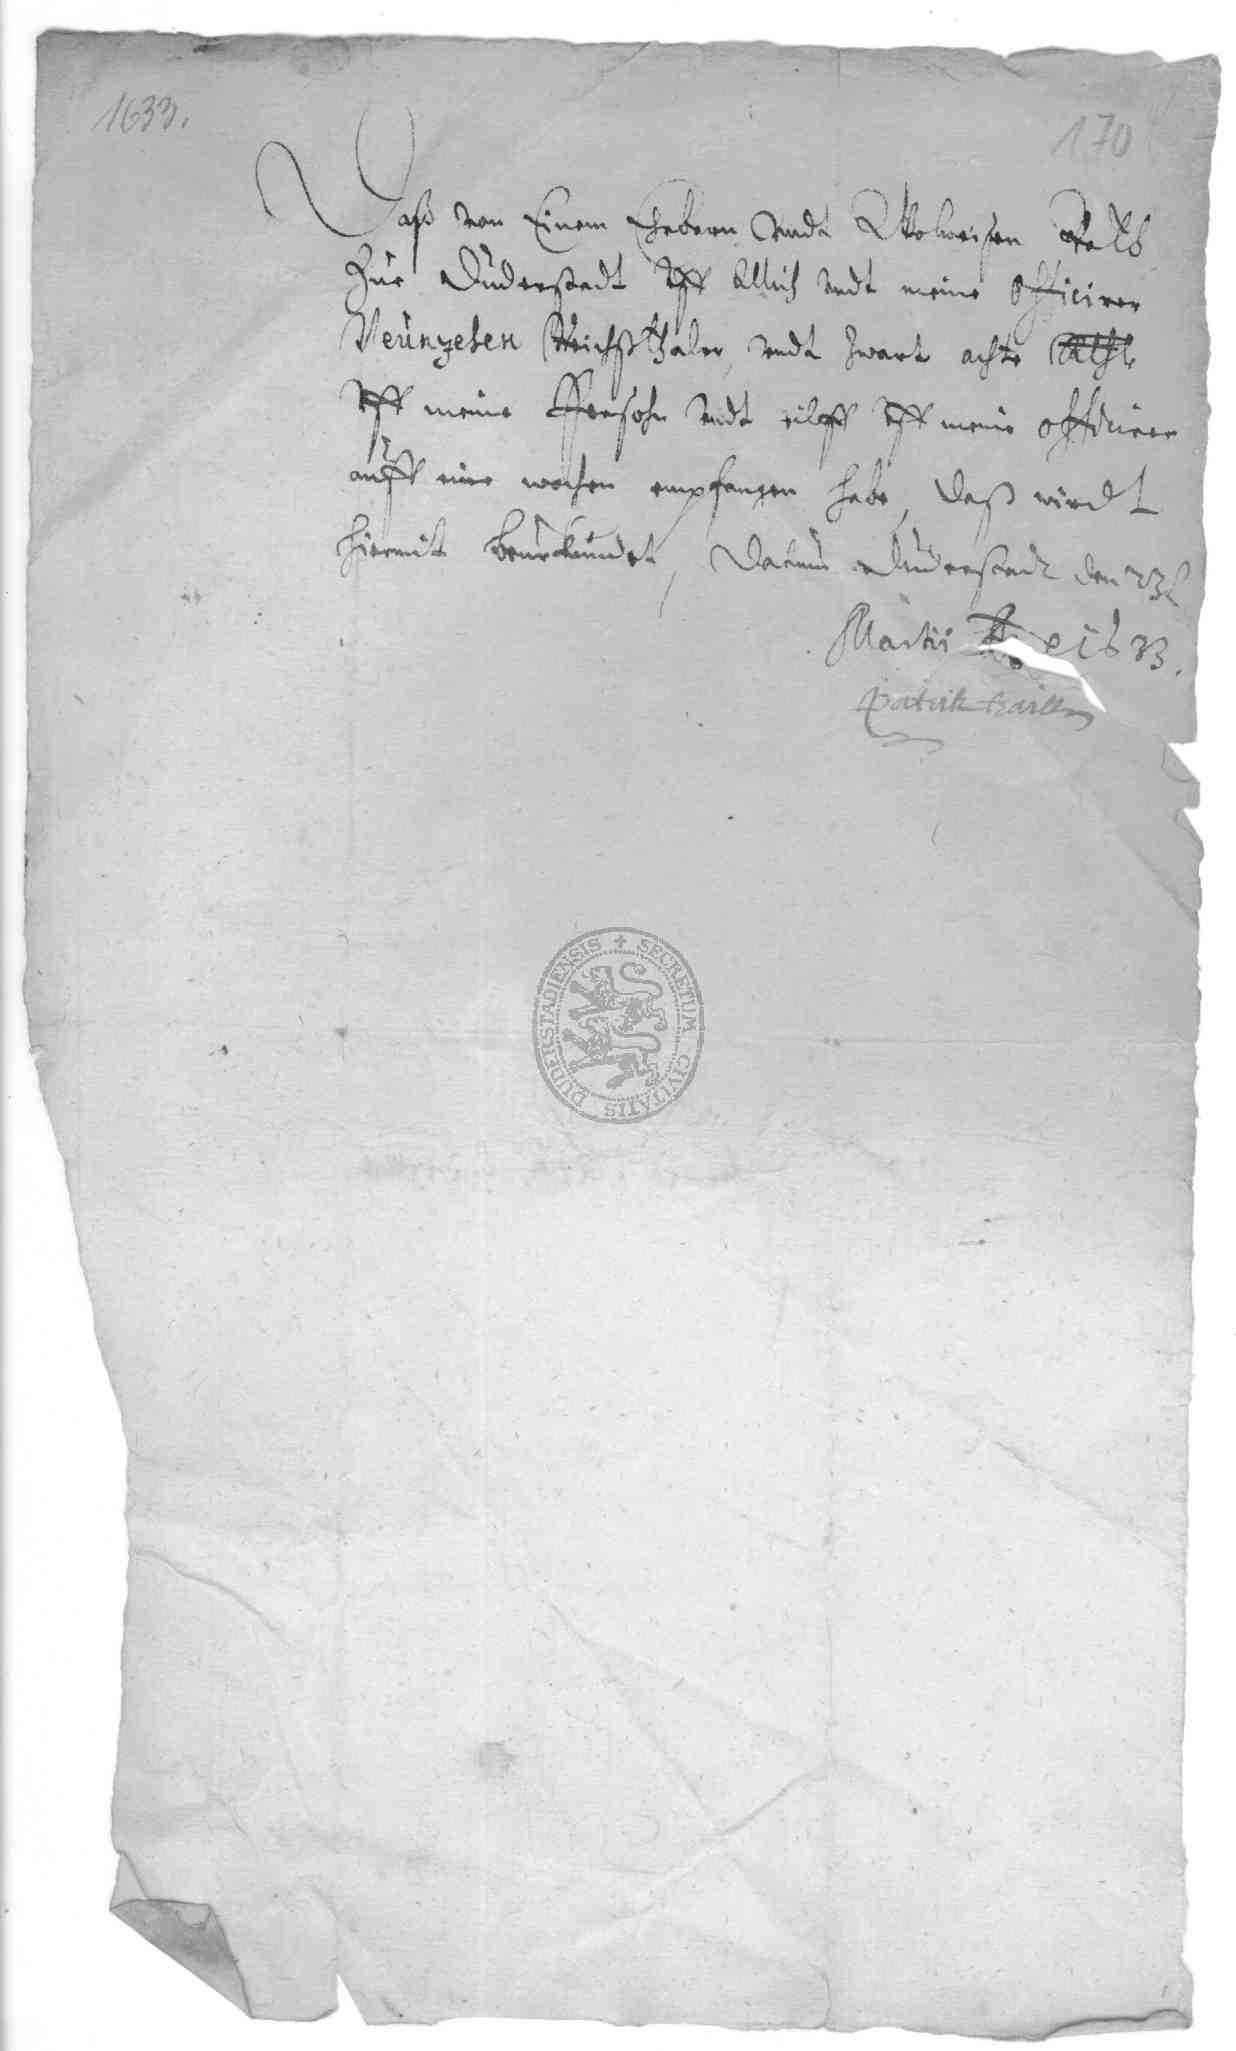 1633.
170
Daß von Einem Ehrbarn vndt Wolweisen Rath
Zur Duderstadt vff Mich vndt meine Officirer
Neünzehen Reichßthaler, vndt zwart achte Rthl
vff meine Persohn vndt eilff vff meine officirer
auff eine wochen empfangen habe, daß wirdt
hiermit beurkundet, Datum Duderstadt den 23t
Martii Ao 1633.
Patrik
SECRETUM CIVITATIS DUDERSTADIENSIS